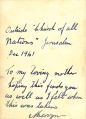 Outside "Church of all
Nations" Jerusalem
Dec 1941
To my loving mother
hoping this finds you
as well as I felt when
this was taken